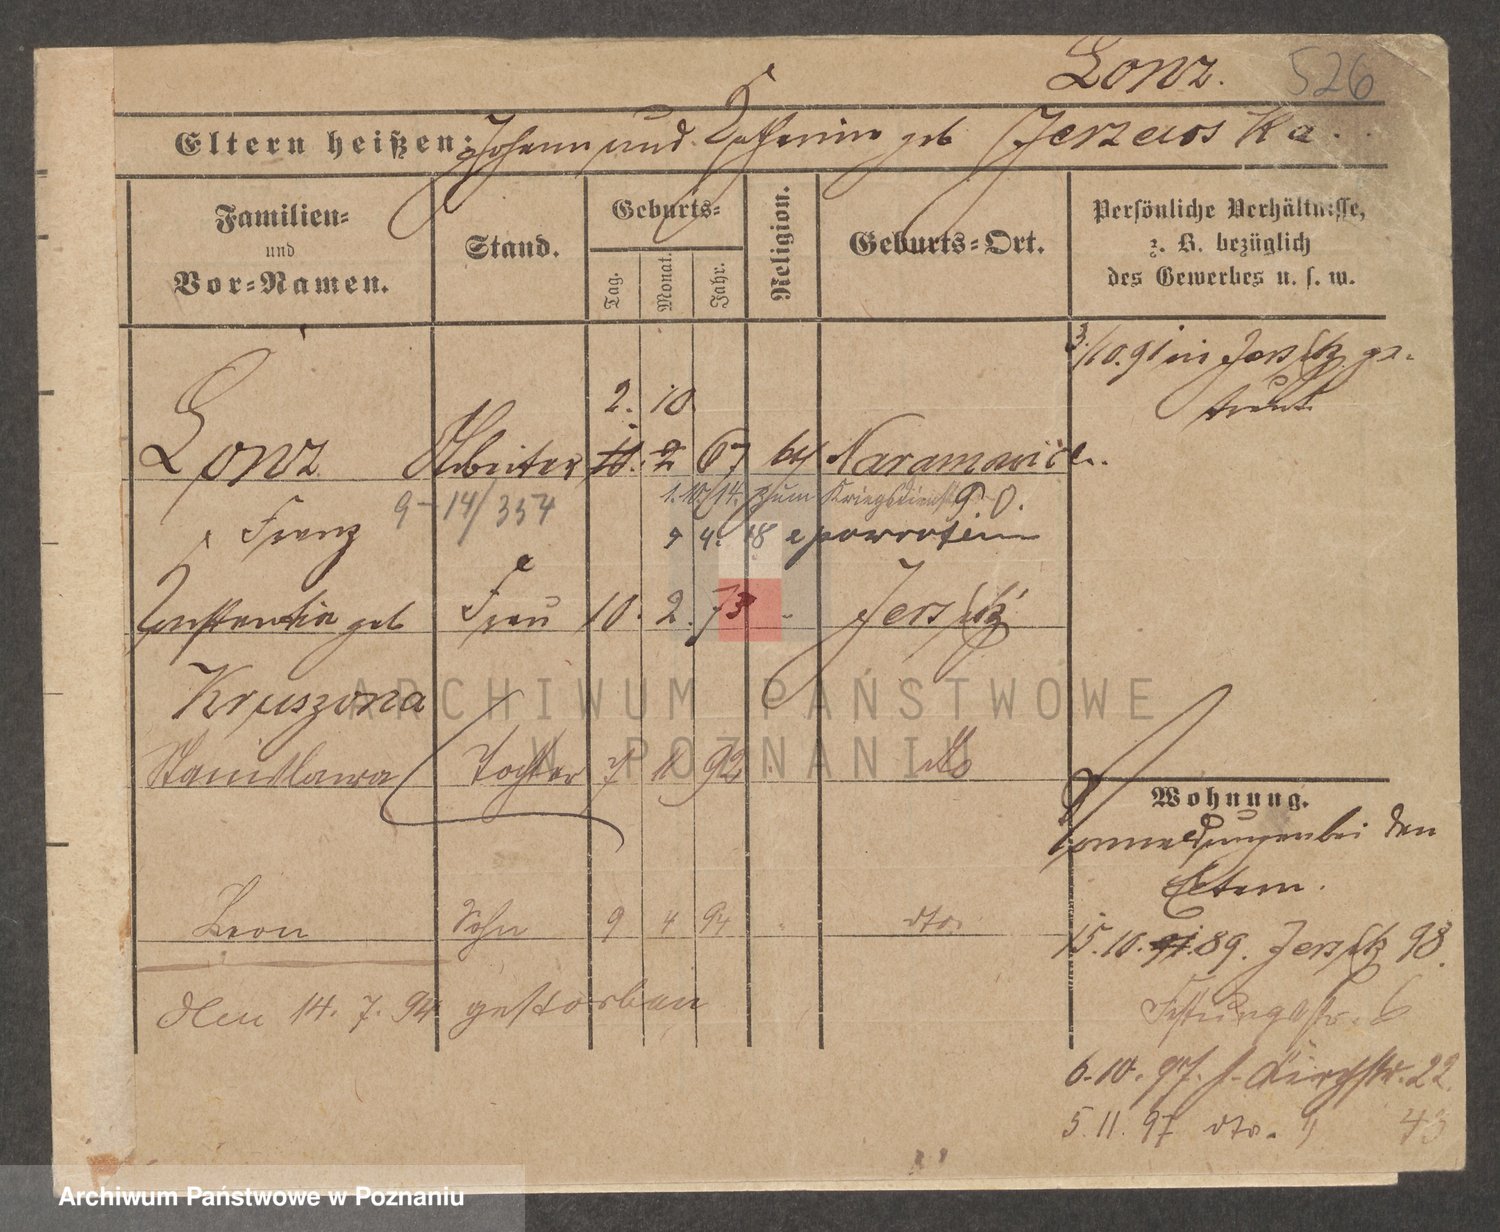 Lonz. 526
Eltern heißen: Johann und Katharina geb
Familien- und Vor-Namen.
Stand.
Geburts-
Tag. Monat. Jahr.
Religion.
Geburts-Ort.
Persönliche Verhältnisse,
z. B. bezüglich
des Gewerbes u. s. w.
3/10.91 in Jersitz ge-
traut
2. 10.
Lonz Arbeiter 11. 2 67 kth Naramowice.
9-14/354 1.10/14. zum Kriegsdienst
Franz 9 4. 18
Konstantia geb Frau 10. 2. 73 Jersitz
Kruszona
Stanislawa Tochter 7 11 92 dto
Wohnung.
bei den
Eltern.
Leon Sohn 9 4 94 dto.
15.10.91.89. Jersitz 98.
den 14. 7. 94 gestorben
Festungsstr. 6
6.10.97. Kirchstr. 22
5.11.97 dto. " 43
ARCHIWUM PAŃSTWOWE
W POZNANIU
Archiwum Państwowe w Poznaniu